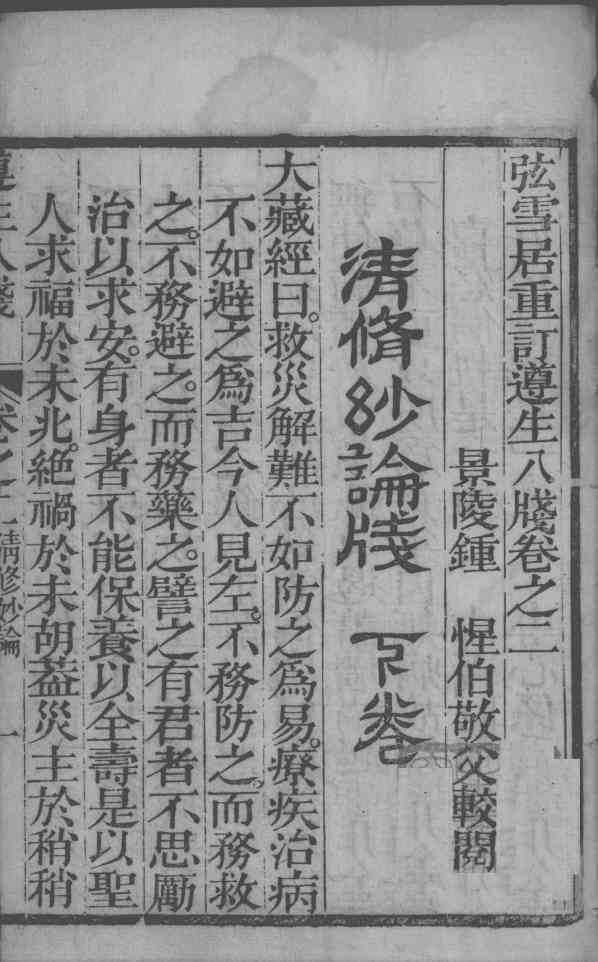 弦雪居重訂遵生八牋卷之二
景陵鍾　惺伯敬父較閱
清脩妙論牋　下卷
大藏經曰。救災解難不如防之爲易。療疾治病
不如避之爲吉今人見左。不務防之。而務救
之。不務避之。而務藥之。譬之有君者不思勵
治以求安。有身者不能保養以全壽是以聖
人求福於未兆。絶禍於未胡蓋災主於稍稍
遵生八牋　卷之二清修妙論　一